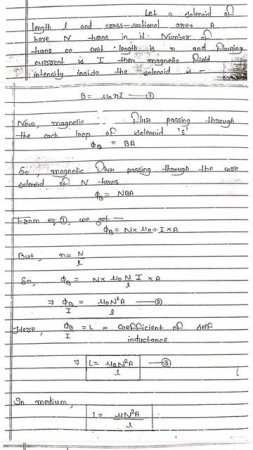 Let a solenoid of
length l and cross-sectional area A
have N turns in it. Number of
turns on unit length is n and flowing
current is I then magnetic field
intensity inside the solenoid is -
B = μ₀nI —①
Now, magnetic flux passing through
the each loop of solenoid 's'
ϕB = BA
So, magnetic flux passing through the
solenoid of N turns
ϕB = NBA
From eq ①, we get —
ϕB = N× μ₀nI×A
But, n = N/l
So, ϕB = N× μ₀ N/l I ×A
⇒ ϕB/I = μ₀N²A/l —②
Here, ϕB/I = L = coefficient of self
inductance
⇒ L = μ₀N²A/l —③
In medium,
L = μN²A/l